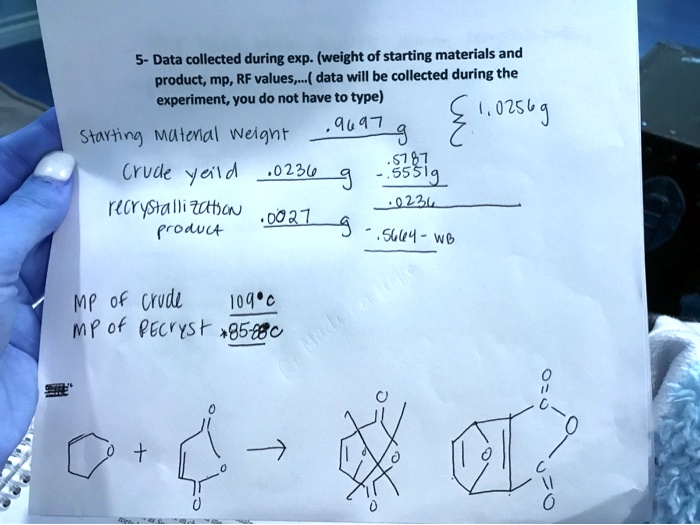 5- Data collected during exp. (weight of starting materials and
product, mp, RF values,...( data will be collected during the
experiment, you do not have to type)
Starting Material Weight .9697 g { 1.0256g
Crude yeild .0236 g .5787
- .5551g
.0236
recrystallization
product .0027 g - .5664 - WB
MP of crude 109°C
MP of RECryst *85-88°C
O O O O
C
O + O → O O O
C
O O O